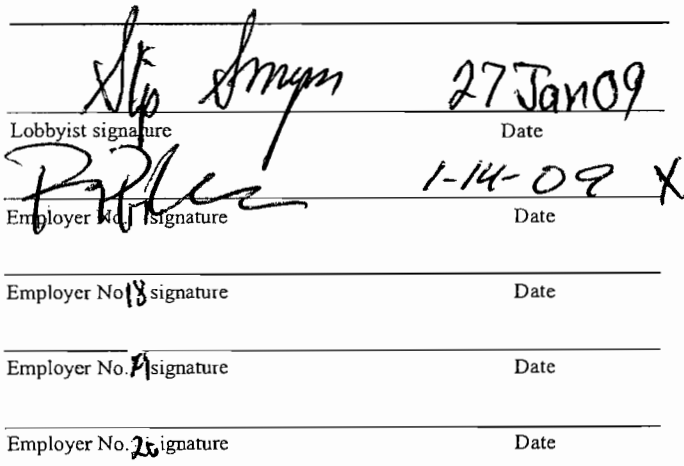 27 Jan 09
Lobbyist signature Date
1-14-09 X
Employer No. signature Date
Employer No 18 signature Date
Employer No. signature Date
Employer No. 20 signature Date